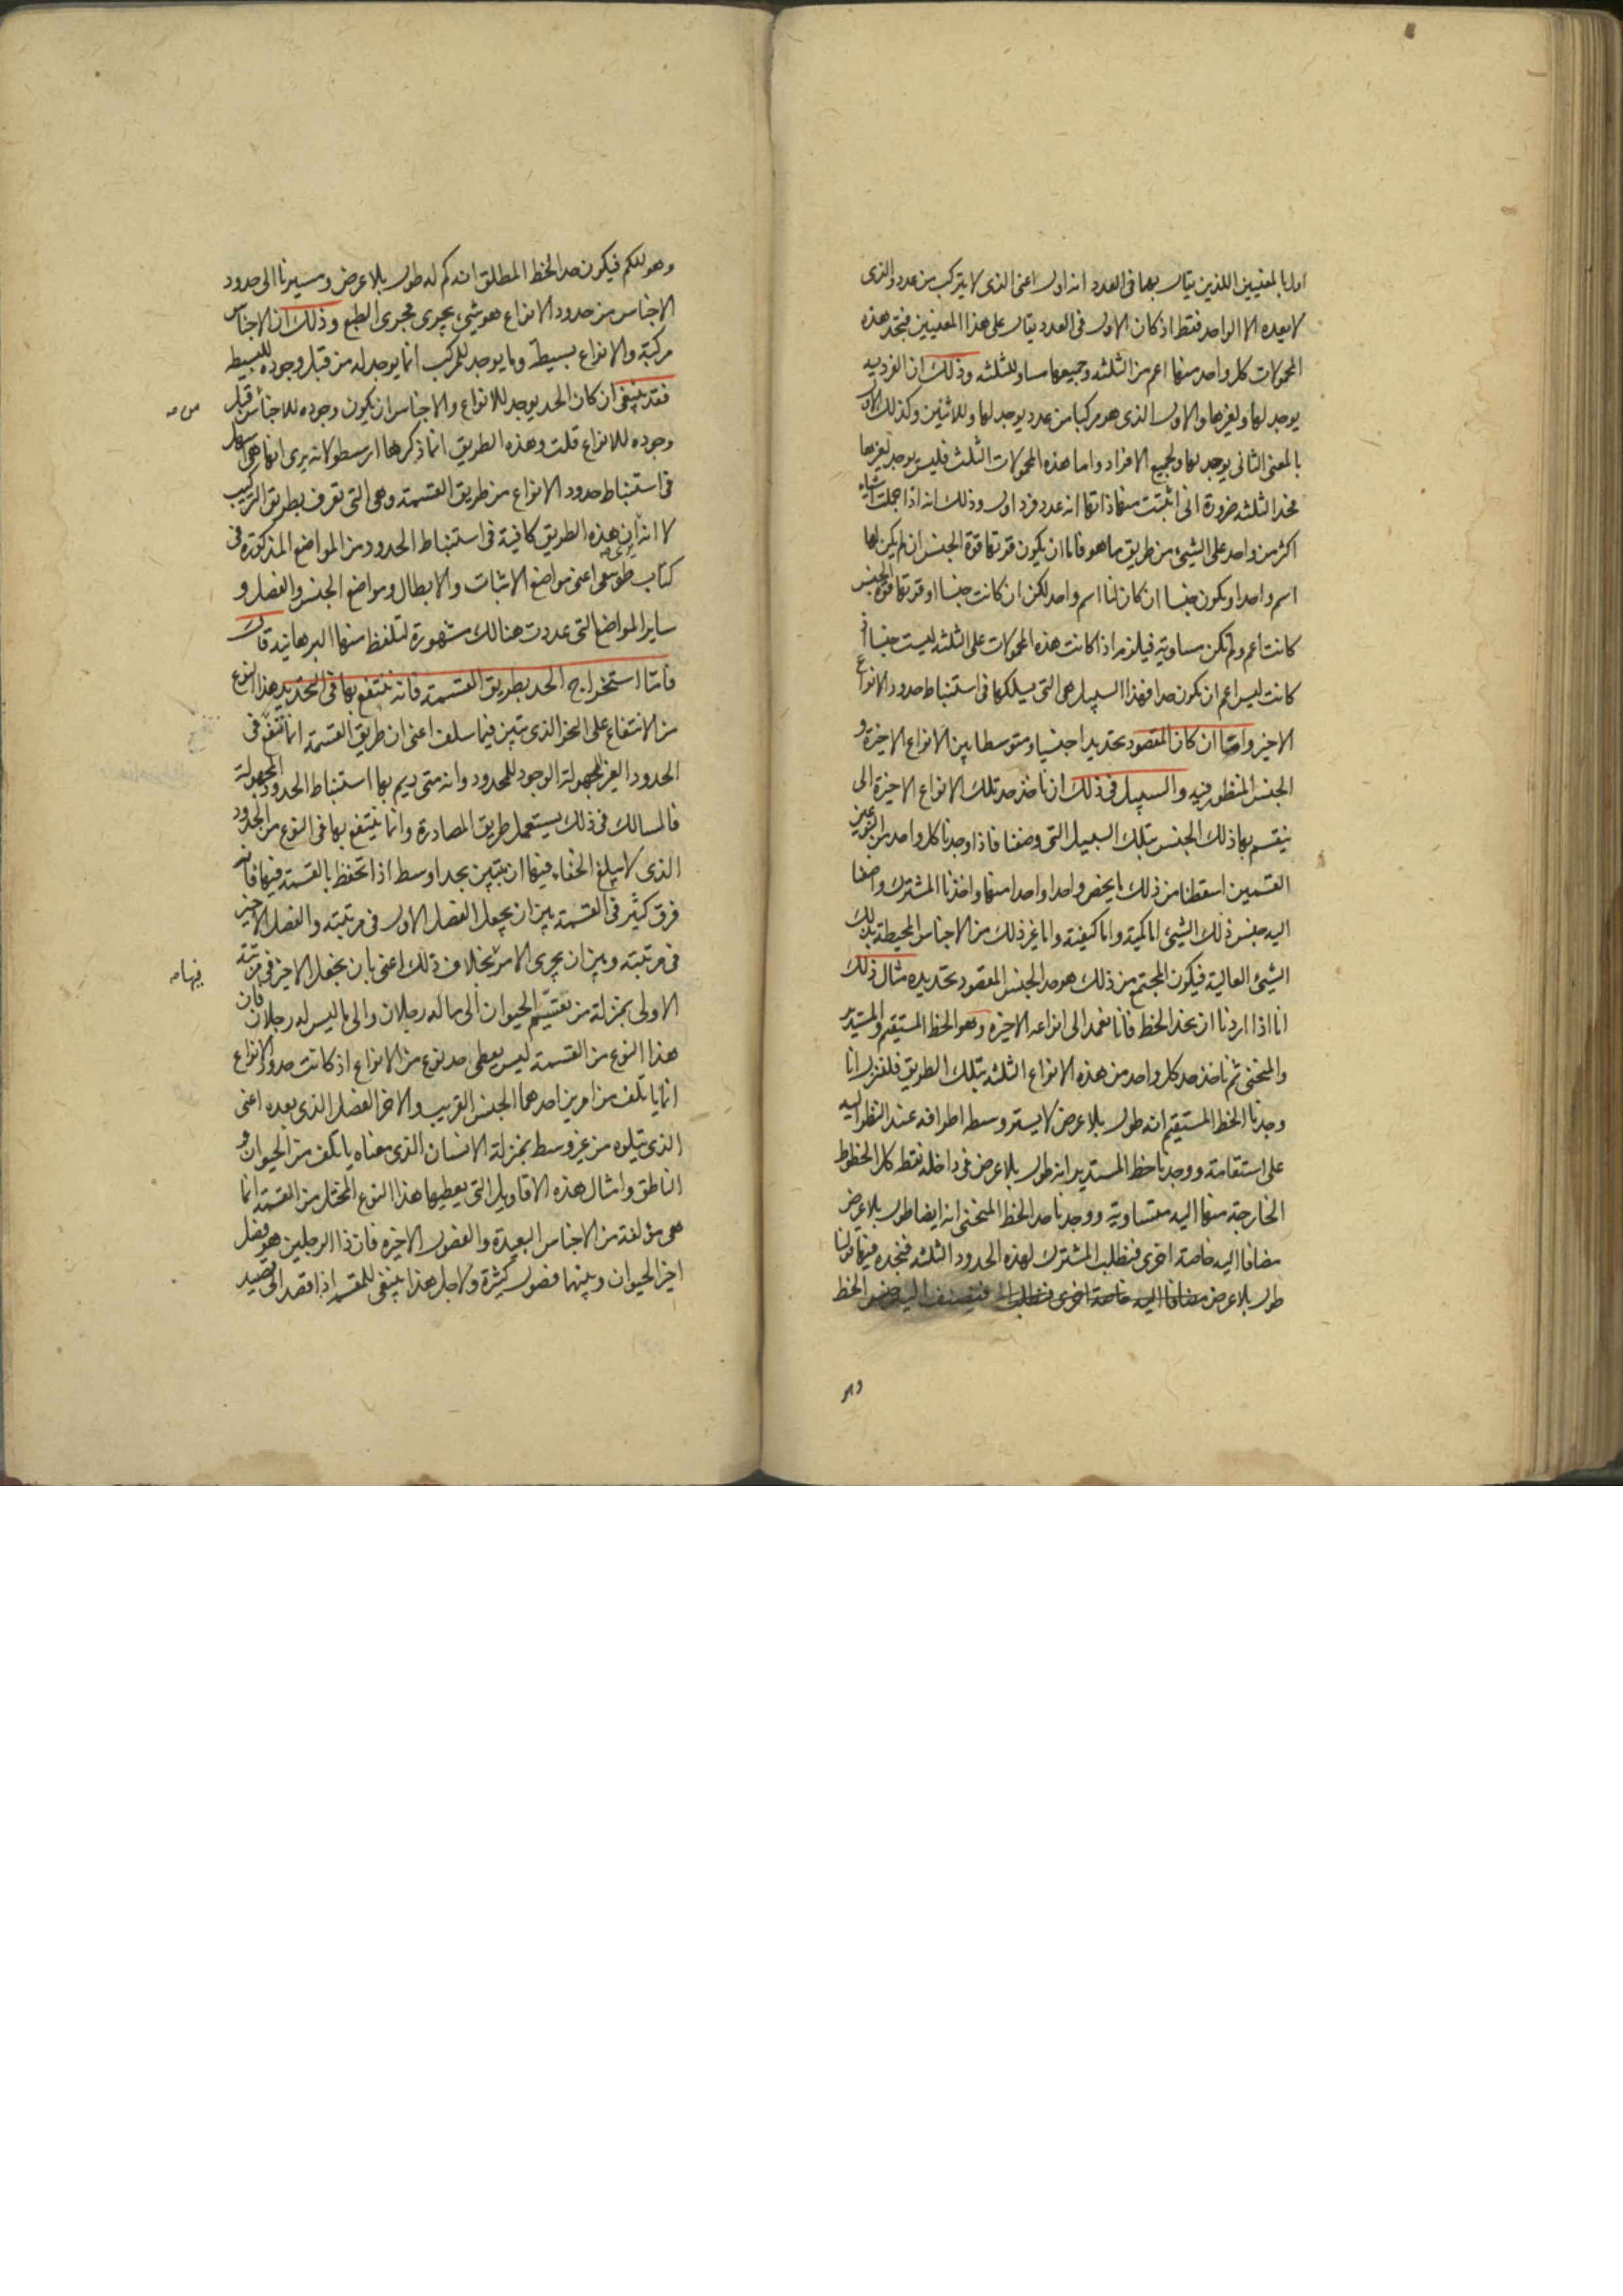 اولا بالمعنيين اللذين يقال بهما فى العدد انه اول اعنى الذى لا يتركب من عدد والذى
لا يعده الا الواحد فقط اذ كان الاول فى العدد يقال على هذا المعنيين فنجد هذه
المحمولات كل واحد منها اعم من الثلثه وجميعها مساو للثلثه وذلك ان الفرد
يوجد لها ولغيرها والاول الذى هو مركبا من عدد يوجد لها وللاثنين وكذلك الاول
بالمعنى الثانى يوجد لها ولجميع الافراد واما هذه المحمولات الثلث فليس يوجد لغيرها
فحد الثلثه ضرورة التى اثبتت منها ذاتها انه عدد فرد اول وذلك انه اذا حملت اشياء
اكثر من واحد على الشىء من طريق ما هو فاما ان يكون قوتها قوة الجنس ان لم يكن لها
اسم واحد او يكون جنسا ان كان لنا اسم واحد لكن ان كانت جنسا او قوتها قوة الجنس
كانت اعم ولم تكن مساوية فيلزم اذا كانت هذه المحمولات على الثلثه ليست جنسا اذ
كانت ليس اعم ان يكون حدا فهذا السبيل هى التى يسلكها فى استنباط حدود الانواع
الاخيرة واما ان كان المقصود تحديد اجناس متوسطا بين الانواع الاخيرة و
الجنس المنظور فيه والسبيل فى ذلك ان ناخذ حد تلك الانواع الاخيرة الى
ينقسم بها ذلك الجنس بتلك السبيل التى وصفنا فاذا وجدنا كل واحد من النوعين
القسمين اسقطنا من ذلك ما يخص واحدا واحدا منها واخذنا المشترك واضفنا
اليه جنس ذلك الشىء اما كمية واما كيفية واما غير ذلك من الاجناس المحيطة بذلك
الشىء العالية فيكون المجتمع من ذلك هو حد الجنس المقصود تحديده مثال ذلك
انا اذا اردنا ان نحد الخط فانا نعمد الى انواعه الاخيرة وهو الخط المستقيم والمستدير
والمنحنى ثم ناخذ حد كل واحد من هذه الانواع الثلثه بتلك الطريق فلنقول انا
وجدنا الخط المستقيم انه طول بلا عرض لا يستر وسطه اطرافه عند النظر اليه
على استقامة ووجدنا خط المستدير انه طول بلا عرض فى داخله نقطه كل الخطوط
الخارجة منها اليه متساوية ووجدنا حد الخط المنحنى انه ايضا طول بلا عرض
مضافا اليه خاصة اخرى فنطلب المشترك لهذه الحدود الثلثه فنجده فيها قولنا
طول بلا عرض مضافا اليه خاصة اخرى فنطلب فنضيف اليه جنس الخط
وهو
وهو الكم فيكون حد الخط المطلق انه كم له طول بلا عرض ومسيرنا الى حدود
الاجناس من حدود الانواع هو شىء يجرى مجرى الطبع وذلك ان الاجناس
مركبة والانواع بسيطة وما يوجد للمركب انما يوجد له من قبل وجوده للبسيط
فقد ينبغى ان كان الحد يوجد للانواع والاجناس ان يكون وجوده للاجناس من قبل
وجوده للانواع قلت وهذه الطريق انما ذكرها ارسطو لانه يرى انها هى اسهل
فى استنباط حدود الانواع من طريق القسمة وهى التى تعرف بطريق التركيب
لا انه ان هذه الطريق كافية فى استنباط الحدود من المواضع المذكورة فى
كتاب طوبيقى اعنى مواضع الاثبات والابطال ومواضع الجنس والفصل و
ساير المواضع التى عددت هنالك مشهورة لتلفظ منها البرهانية قال
فاما استخراج الحد بطريق القسمة فانه ينتفع بها فى التحديد هذا النوع
من الانتفاع على النحو الذى تبين فيما سلف اعنى ان طريق القسمة انما تنفع فى
الحدود الغير المجهولة الوجود للمحدود وانه متى ديم بها استنباط الحدود المجهولة
فالمسالك فى ذلك يستعمل طريق المصادرة وانما ينتفع بها فى النوع من الحدود
الذى لا يبلغ الخفاء فيها ان يتبين بحد اوسط اذا تحفظ بالقسمة فيها فانه
فرق كثير فى القسمة بين ان يجعل الفصل الاول فى مرتبته والفصل الاخير
فى مرتبته وبين ان يجرى الامر بخلاف ذلك اعنى بان يجعل الاخير فى مرتبة
الاولى بمنزلة من يقسم الحيوان الى ما له رجلان والى ما ليس له رجلان فان
هذا النوع من القسمة ليس يعطى حد نوع من الانواع اذ كانت حدود الانواع
انما ياتلف من امرين احدهما الجنس القريب والاخر الفصل الذى بعده اعنى
الذى يتلوه من غير وسط بمنزلة الانسان الذى معناه ياتلف من الحيوان و
الناطق وامثال هذه الاقاويل التى يعطيها هذا النوع المختل من القسمة انما
هى مؤلفة من الاجناس البعيدة والفصول الاخيرة فان ذا الرجلين هو فصل
اخير الحيوان وبينهما فصول كثيرة ولاجل هذا ينبغى للمقسم اذا قصد الى تقييد
من
فيها